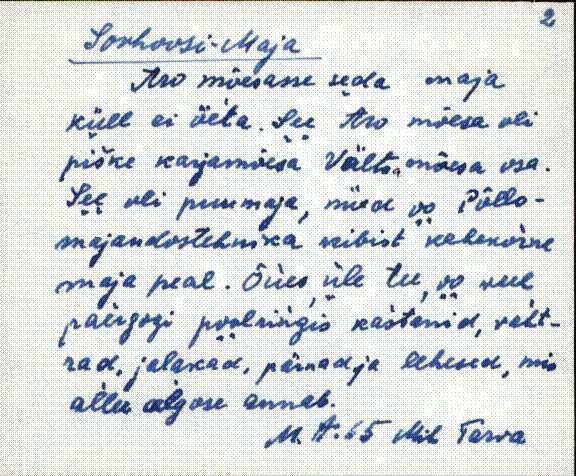 2
Sovhoosi-Maja
Aro mõesasse seda maja
küll ei öeta. See Aro mõesa oli
piske karjamõesa Vältsa mõesa osa.
See oli puumaja, nüed oo Põllo-
majandostehnika kibist kehekorne
maja peal. Õues, üle tee, oo veel
paergogi poolringis kastanid, vaht-
rad, jalakad, pärnad ja lehesed, mis
allee algose annab.
Mih Tarva